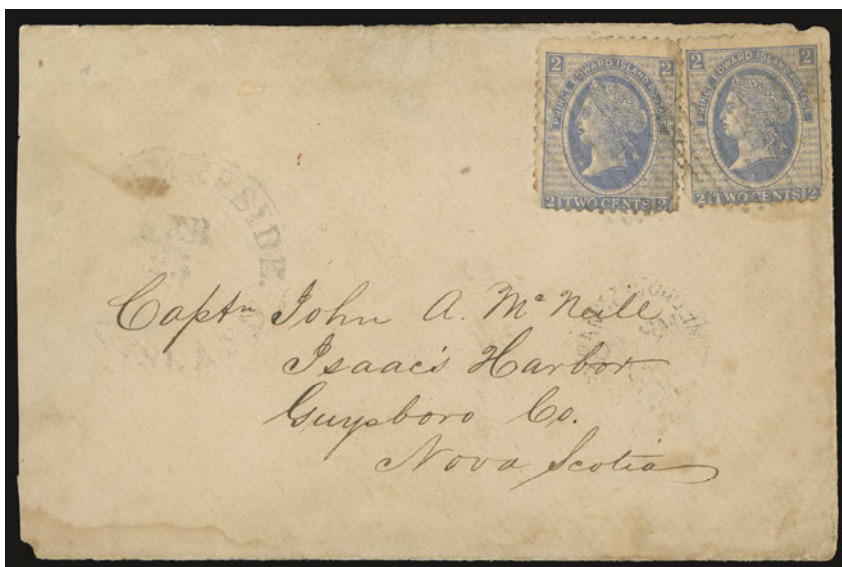 2 2
PRINCE EDWARD ISLAND POSTAGE
2 TWO CENTS 2
2 2
PRINCE EDWARD ISLAND POSTAGE
2 TWO CENTS 2
Captn John A. McNeill
Isaac's Harbor
Guysboro Co.
Nova Scotia